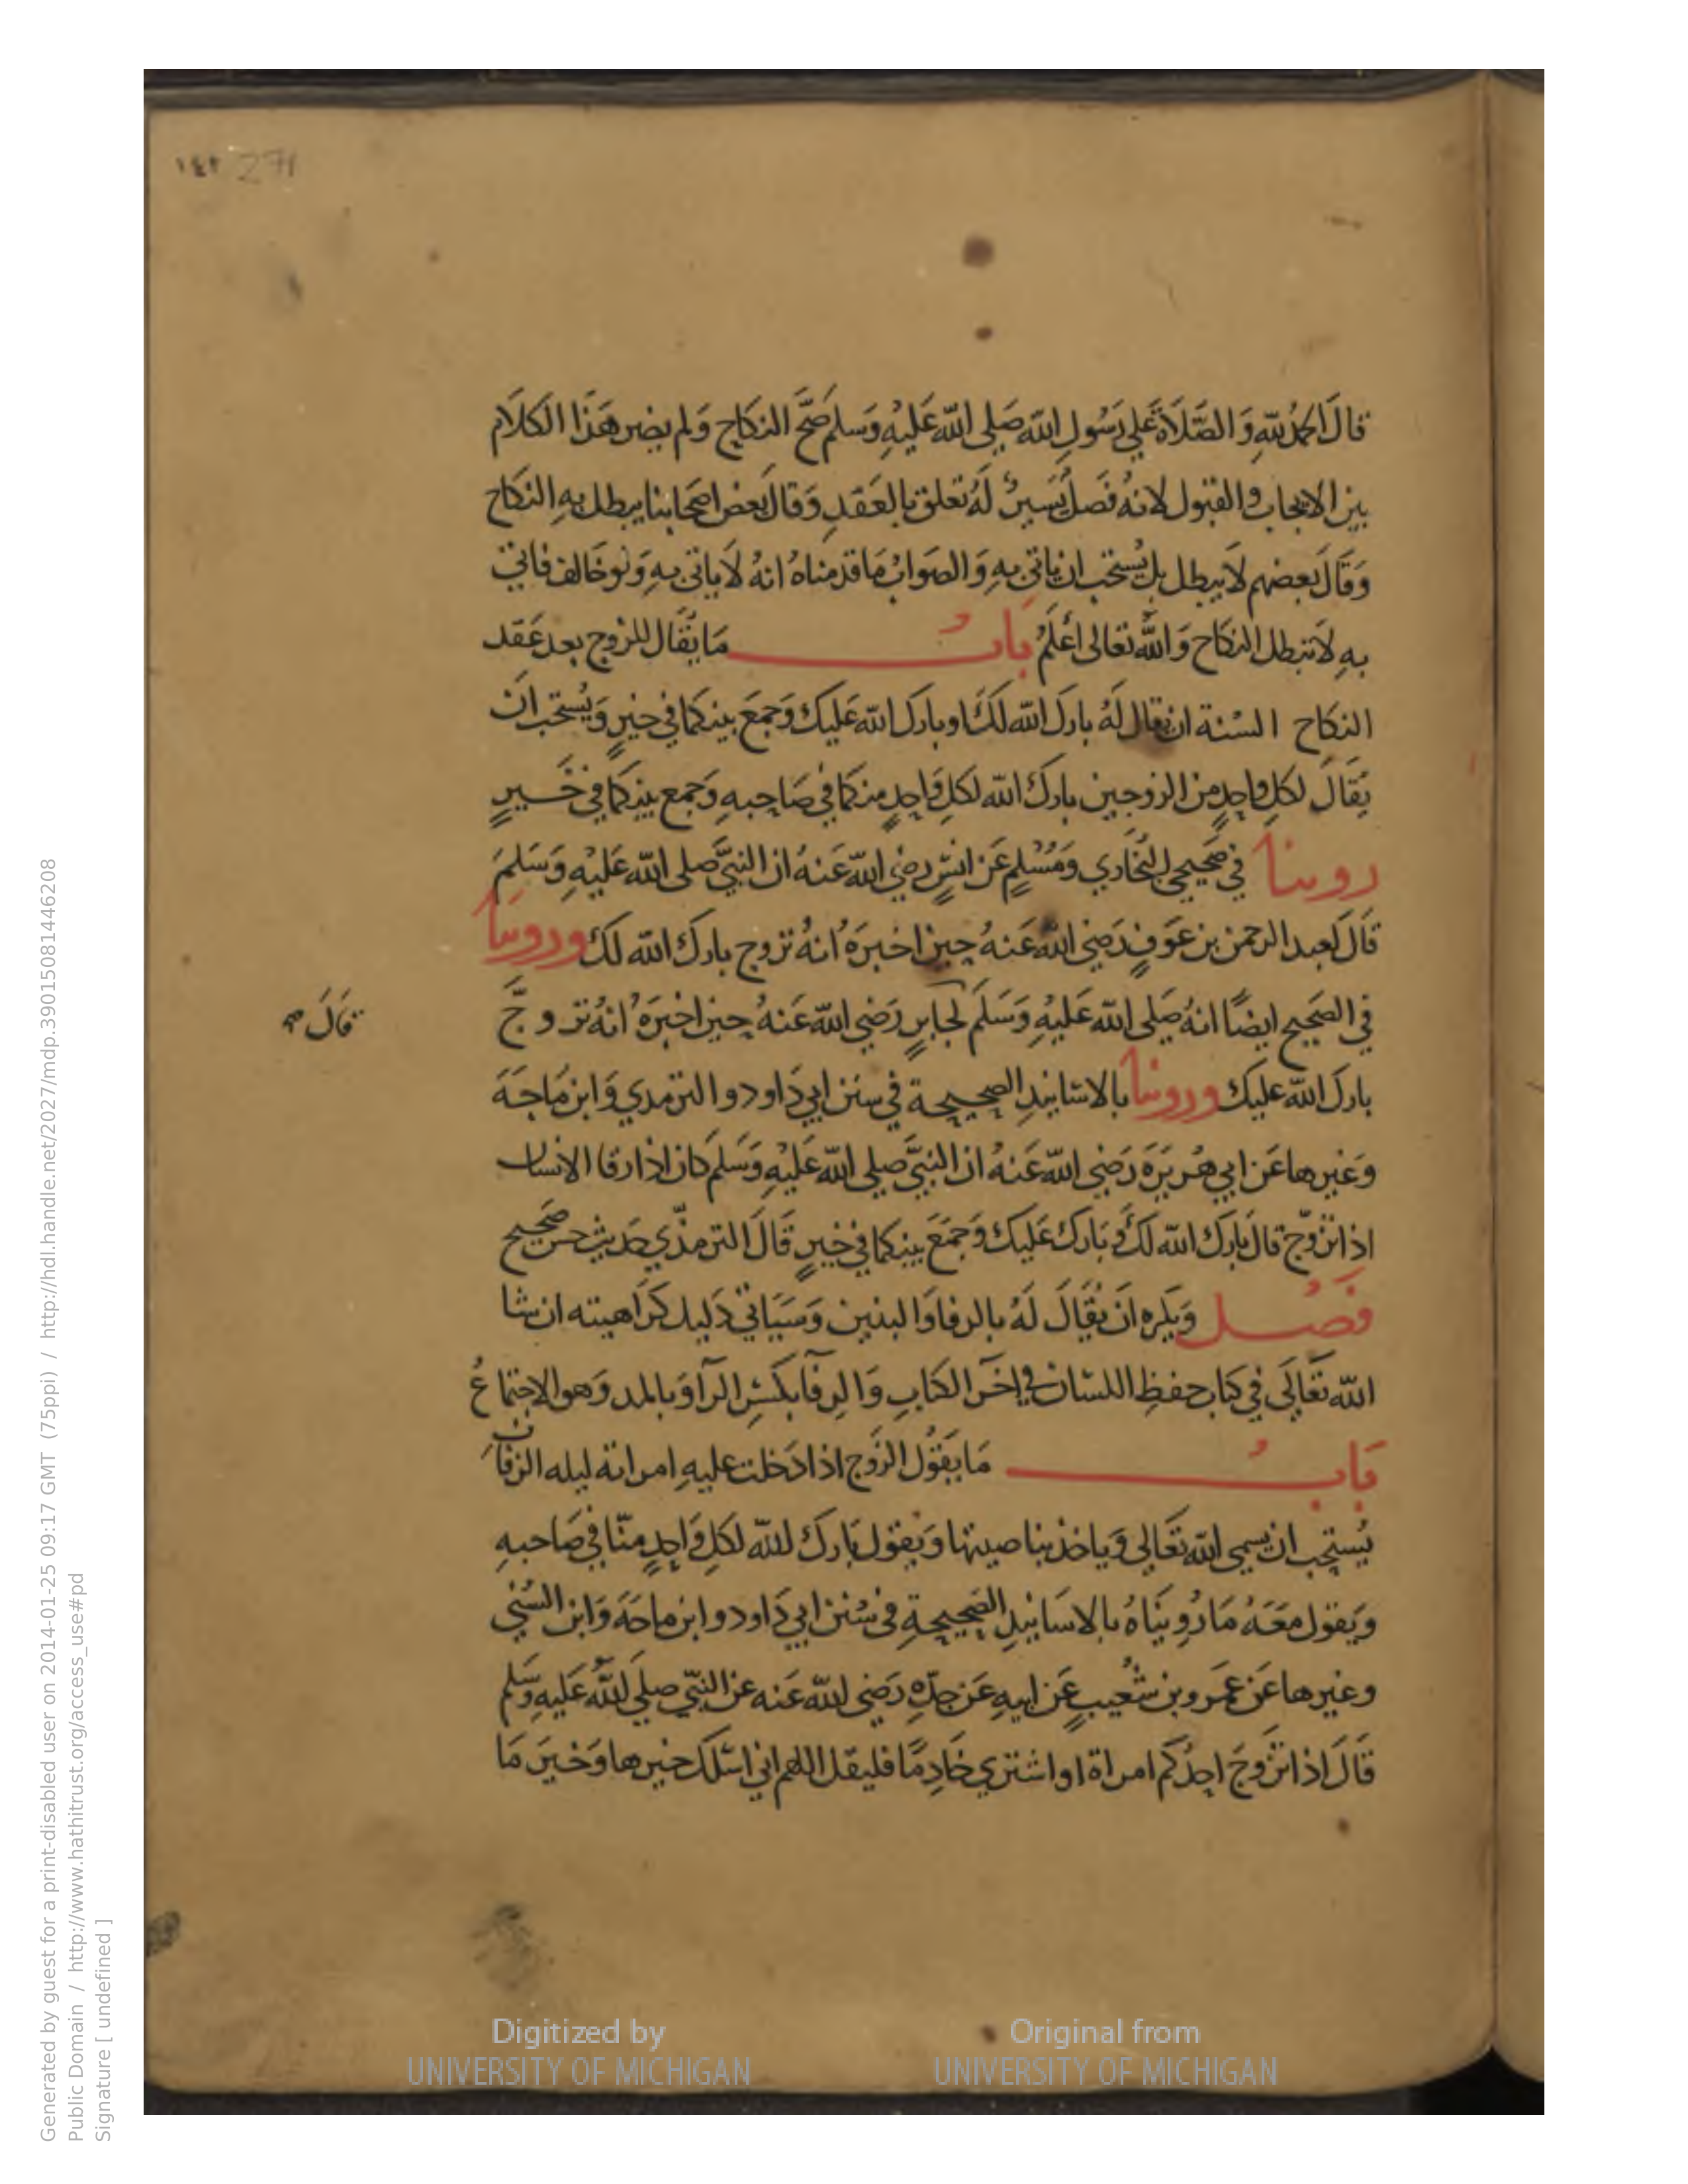 ١٤٢ 271
قالَ الحمدُ لله وَالصَّلاَة عَلى رَسُولِ الله صَلى الله عَليْهِ وَسَلم صَحَّ النكاح وَلم يضر هَذا الكَلَام
بين الايجاب والقبول لانهُ فصَل يَسيرٌ لهُ تعلق بالعَقدِ وَقالَ بَعض اصحابنا يبطل بهِ النكاح
وَقَالَ بَعضهم لَا يبطل بل يُستحَب ان ياتى بهِ وَالصَوابُ مَا قدمناهُ انهُ لاَ ياتى بهِ وَلو خَالف فاتى
بهِ لاَ يبطل النكاح وَاللهُ تعَالى اَعْلمُ بَابُ مَا يقَال للزوج بعد عَقد
النكاح السُنة ان يقال لهُ بارَك الله لكَ او بارَك الله عَليك وَجمَعَ بينكما في خيرٍ وَيُستحَب انْ
يقَالَ لكل واحِدٍ من الزوجين بارَك الله لكل وَاحِدٍ منكما في صَاحِبهِ وَجمع بينكما في خَيرٍ
روينا في صَحيحي البُخاري وَمُسْلمٍ عَن انسٍ رضي الله عَنهُ ان النبيَّ صَلى الله عَليْهِ وَسَلمَ
قالَ لعبد الرحمن بن عَوفٍ رَضي الله عَنهُ حين اخبرَهُ انهُ تزوج بارَك الله لكَ وروينا
في الصَحيح ايضًا انهُ صَلى الله عَليْهِ وَسَلمَ لجابرٍ رَضي الله عَنهُ حين اخبَرَهُ انهُ تزوجَّ
قَالَ صح
بارَك الله عَليك وروينا بالاسَانيدِ الصحيحة في سنن ابي دَاود والترمدي وَابن مَاجَةَ
وَغيرها عَن ابي هُريرَةَ رَضي الله عَنهُ ان النبيَّ صَلى الله عَليْهِ وَسَلم كان اذا رفا الانسان
اذا تزوّج قال بَارَك الله لكَ وَبَارَك عَليك وَجمَعَ بينكما في خيرٍ قَالَ الترمذّي حَديث حسن صَحيح
فصْل وَيكره انَ يُقالَ لهُ بالرفا وَالبنين وَسَيَاتي دَليل كَرَاهيته ان شا
الله تعَالَى في كتاب حفظِ اللسَان في اخَر الكتابِ وَالرِفآ بكسْرِ الرآ وَبالمد وَهو الاجتماعُ
بَابُ مَا يَقوُل الزَوج اذا دَخلت عليهِ امراته ليله الزفاف
يُستحِب ان يسمى الله تعَالى وَياخذ بناصيتها وَيَقول بَارَك الله لكل وَاحِدٍ منّا في صَاحبهِ
وَيقول معَهُ مَا رُوِينَاهُ بالاسَانيدِ الصَحيحةِ في سُنن ابي دَاود وابن ماجَةَ وَابن السُني
وغيرها عَن عَمرو بن شُعيبٍ عَن ابيهِ عَن جدّهِ رَضي الله عَنه عن النبيّ صلى الله عَليهِ وَسَلم
قَالَ اذا تزَوجَ احِدُكم امراة او اشترى خَادِمًا فليقل اللهم اني اسَئلك خيرها وَخيرَ مَا
Digitized by
UNIVERSITY OF MICHIGAN
Original from
UNIVERSITY OF MICHIGAN
Generated by guest for a print-disabled user on 2014-01-25 09:17 GMT (75ppi) / http://hdl.handle.net/2027/mdp.39015081446208
Public Domain / http://www.hathitrust.org/access_use#pd
Signature [ undefined ]